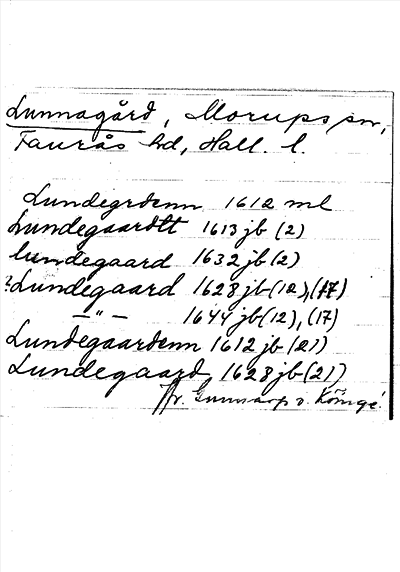 Lunnagård, Morups sn,
Faurås hd, Hall. l.
Lundegrdenn 1612 ml
Lundegaardtt 1613 jb (2)
lundegaard 1632 jb (2)
?Lundegaard 1628 jb (12), (17)
— " — 1644 jb (12), (17)
Lundegaardenn 1612 jb (21)
Lundegaard 1628 jb (21)
fr. Gunnarp o. Köinge!